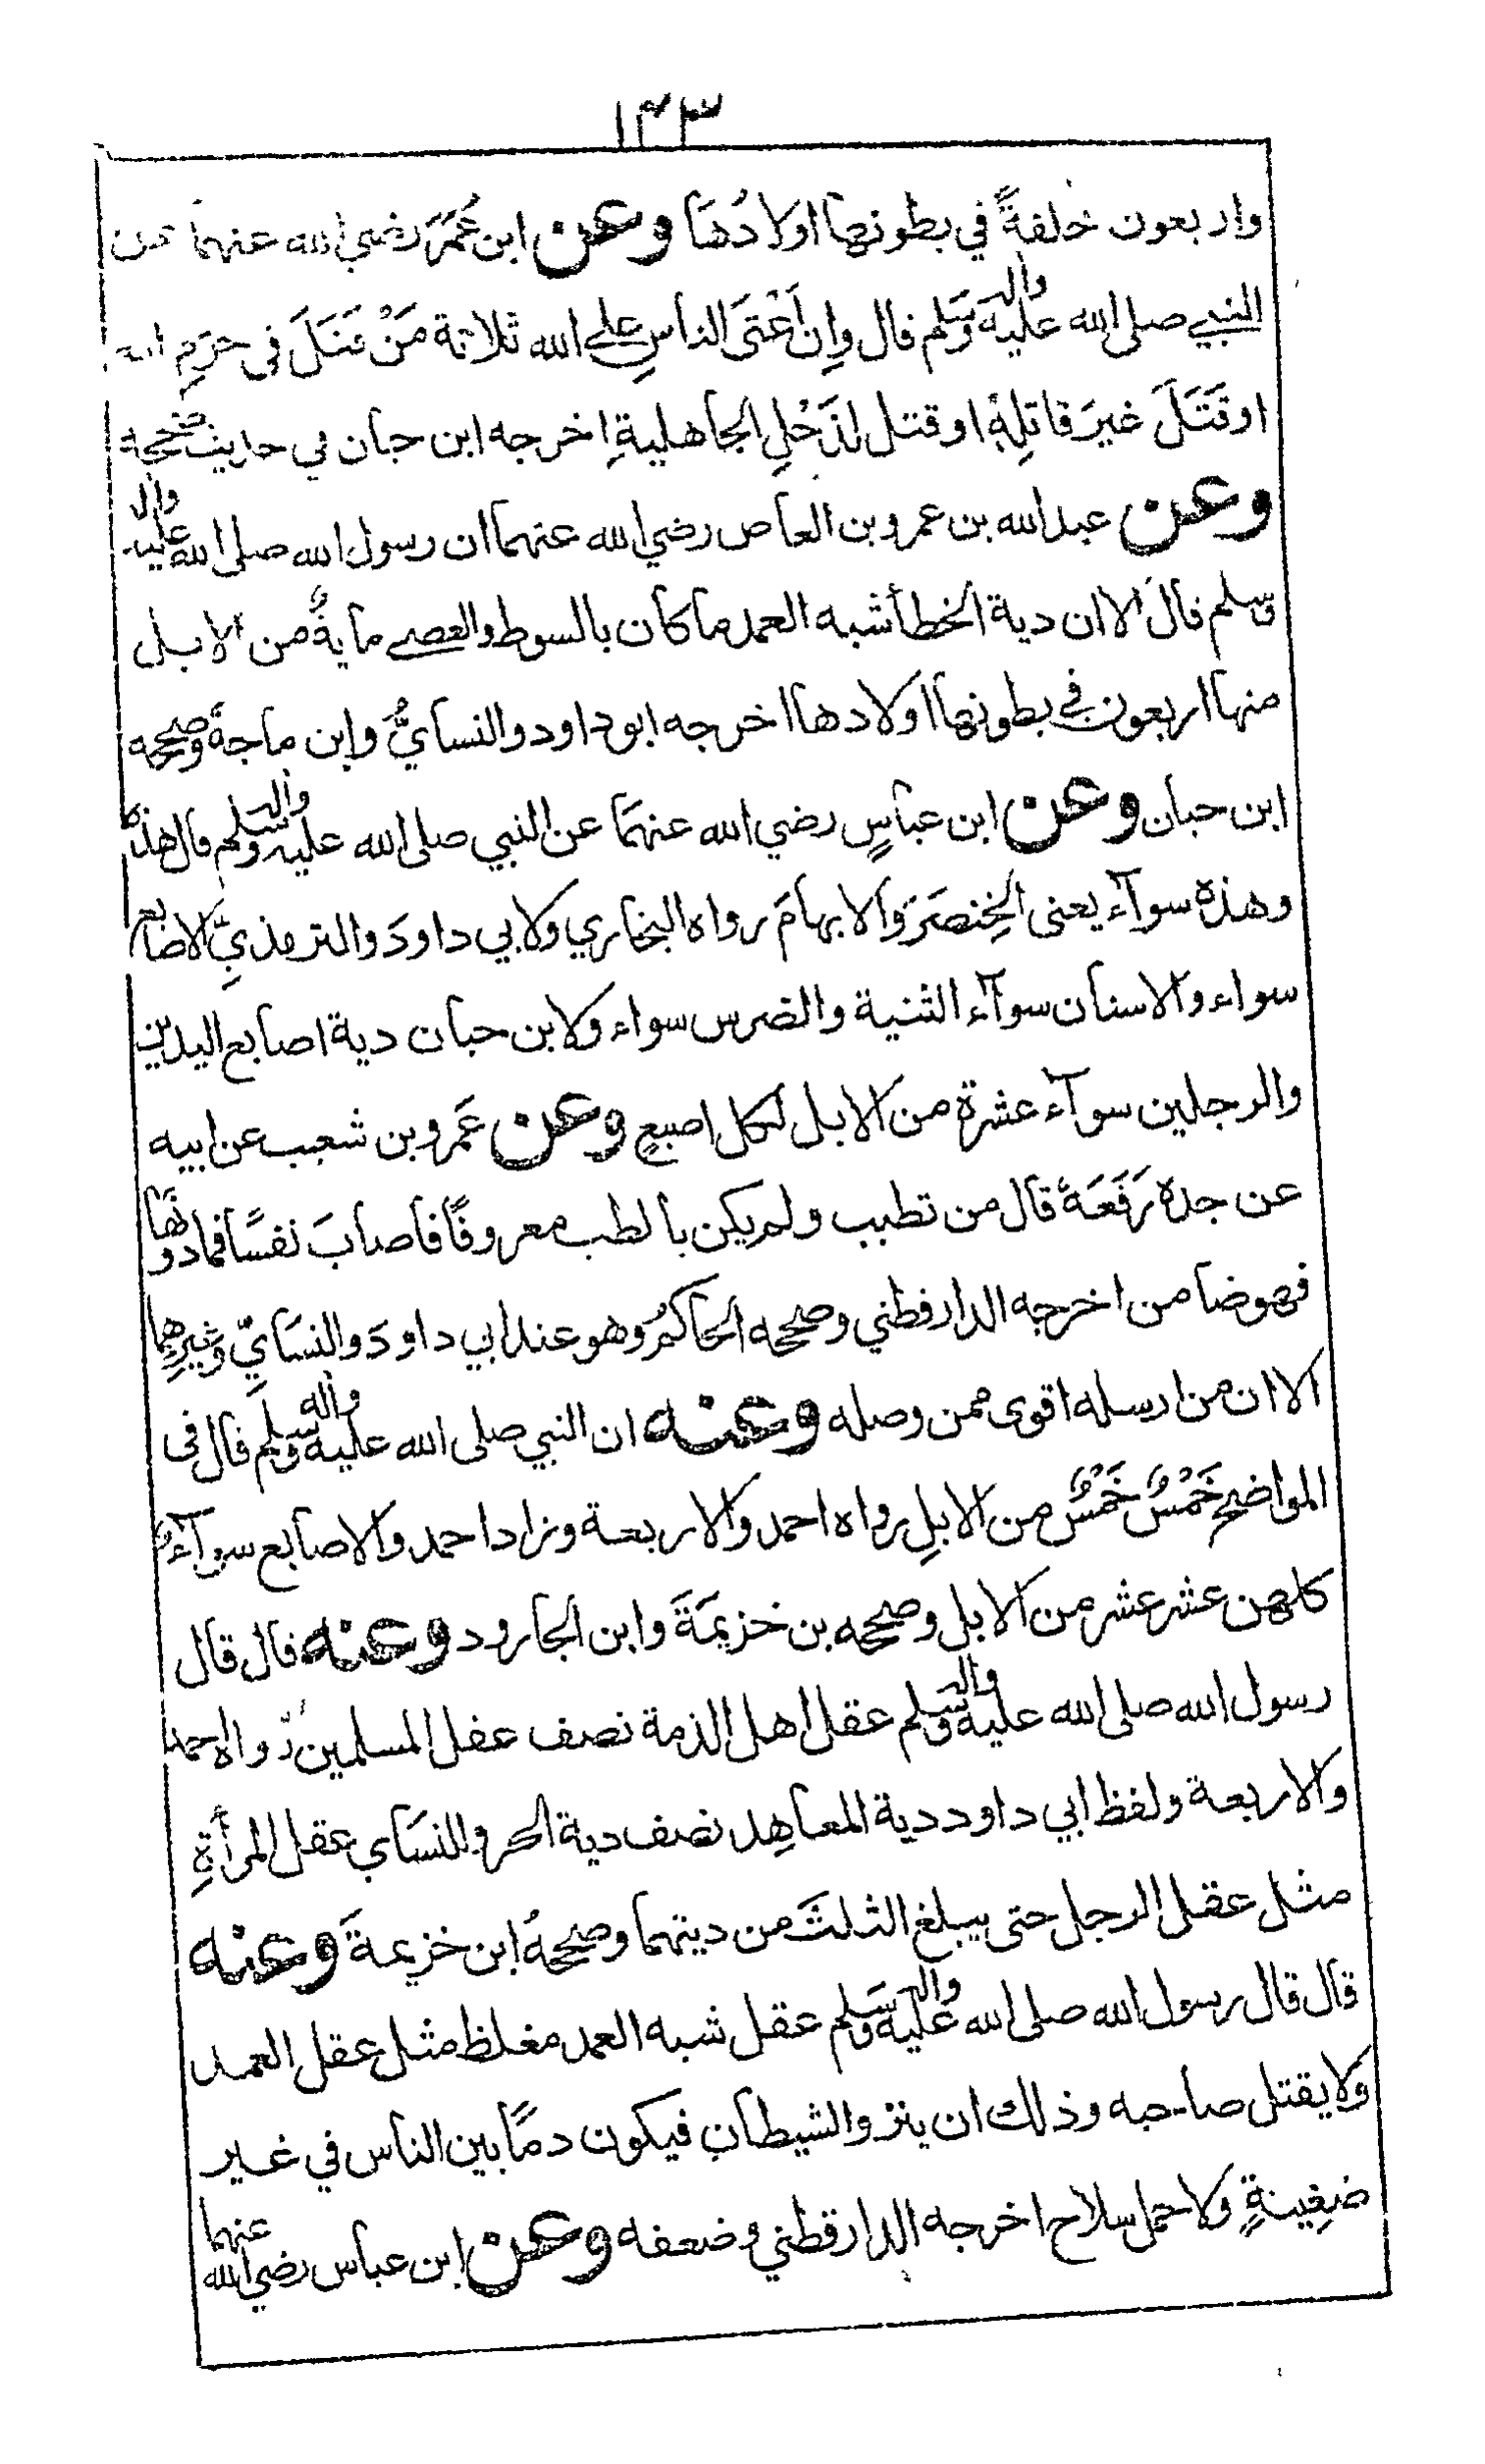 ١٣٣
واربعون خلفةً في بطونها اولادُهَا وعن ابن عُمَرَ رضي الله عنهما عن
النبي صلى الله عليه واله وسَلم قال وإِن أَعْتَى الناسِ على الله ثلاثة مَنْ قَتَلَ فى حرَمِ الله
او قَتَلَ غيرَ قاتلِهِ او قتل لذَحْلِ الجاهليةِ اخرجه ابن حبان في حديث صححه
وعن عبد الله بن عمرو بن العاص رضي الله عنهما ان رسول الله صلى الله عليه واله
وسلم قال الا ان دية الخطأ شبه العمد ما كان بالسوط والعصى مايةٌ من الابل
منها اربعون في بطونها اولادها اخرجه ابو داود والنسايُّ وابن ماجةَ وصححه
ابن حبان وعن ابن عباسٍ رضي الله عنهمَا عن النبي صلى الله عليه واله وسلم قال هذه
وهذه سوآء يعنى الخِنصَرَ والابهامَ رواه البخاري ولابي داودَ والترمذيِّ الاصابع
سواء والاسنان سوآء الثنية والضرس سواء ولابن حبان دية اصابع اليدين
والرجلين سوآء عشرة من الابل لكل اصبعٍ وعن عَمرو بن شعيب عن ابيه
عن جده رَفَعَهُ قال من تطبب ولم يكن بالطب معروفًا فاصابَ نفسًا فما دونَها
فهو ضامن اخرجه الدارقطني وصححه الحاكمُ وهو عند ابي داودَ والنسَايّ وغيرِهِما
الا ان من ارسله اقوى ممن وصله وعنه ان النبي صلى الله عليه واله وسلم قال فى
المواضح خَمْسٌ خَمْسٌ من الابلِ رواه احمد والاربعة وزاد احمد والاصابع سوآءٌ
كلهن عشر عشر من الابل وصححه بن خزيمَةَ وابن الجارود وعنه قال قال
رسول الله صلى الله عليه واله وسلم عقل اهل الذمة نصف عقل المسلمين رواه احمد
والاربعة ولفظ ابي داود دية المعاهِد نصف دية الحر وللنسَاي عقل المرأةِ
مثل عقل الرجل حتى يبلغ الثلثَ من ديتهما وصححهُ ابن خزيمةَ وعنه
قال قال رسول الله صلى الله عليه واله وسَلم عقل شبه العمد مغلظ مثل عقل العمد
ولا يقتل صاحبه وذلك ان ينزو الشيطان فيكون دمًا بين الناس في غير
ضغِينةٍ ولا حمل سلاح اخرجه الدارقطني وضعفه وعن ابن عباس رضي الله عنهما